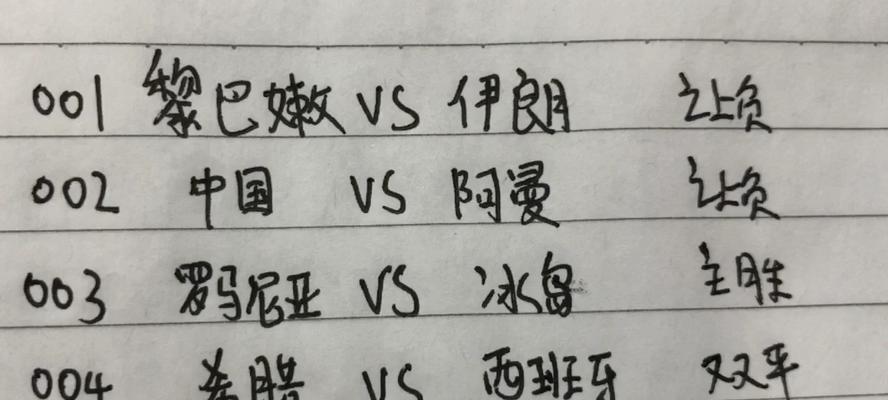 001 黎巴嫩 VS 伊朗 让负
002 中国 VS 阿曼 让负
003 罗马尼亚 VS 冰岛 主胜
004 希腊 VS 西班牙 双平